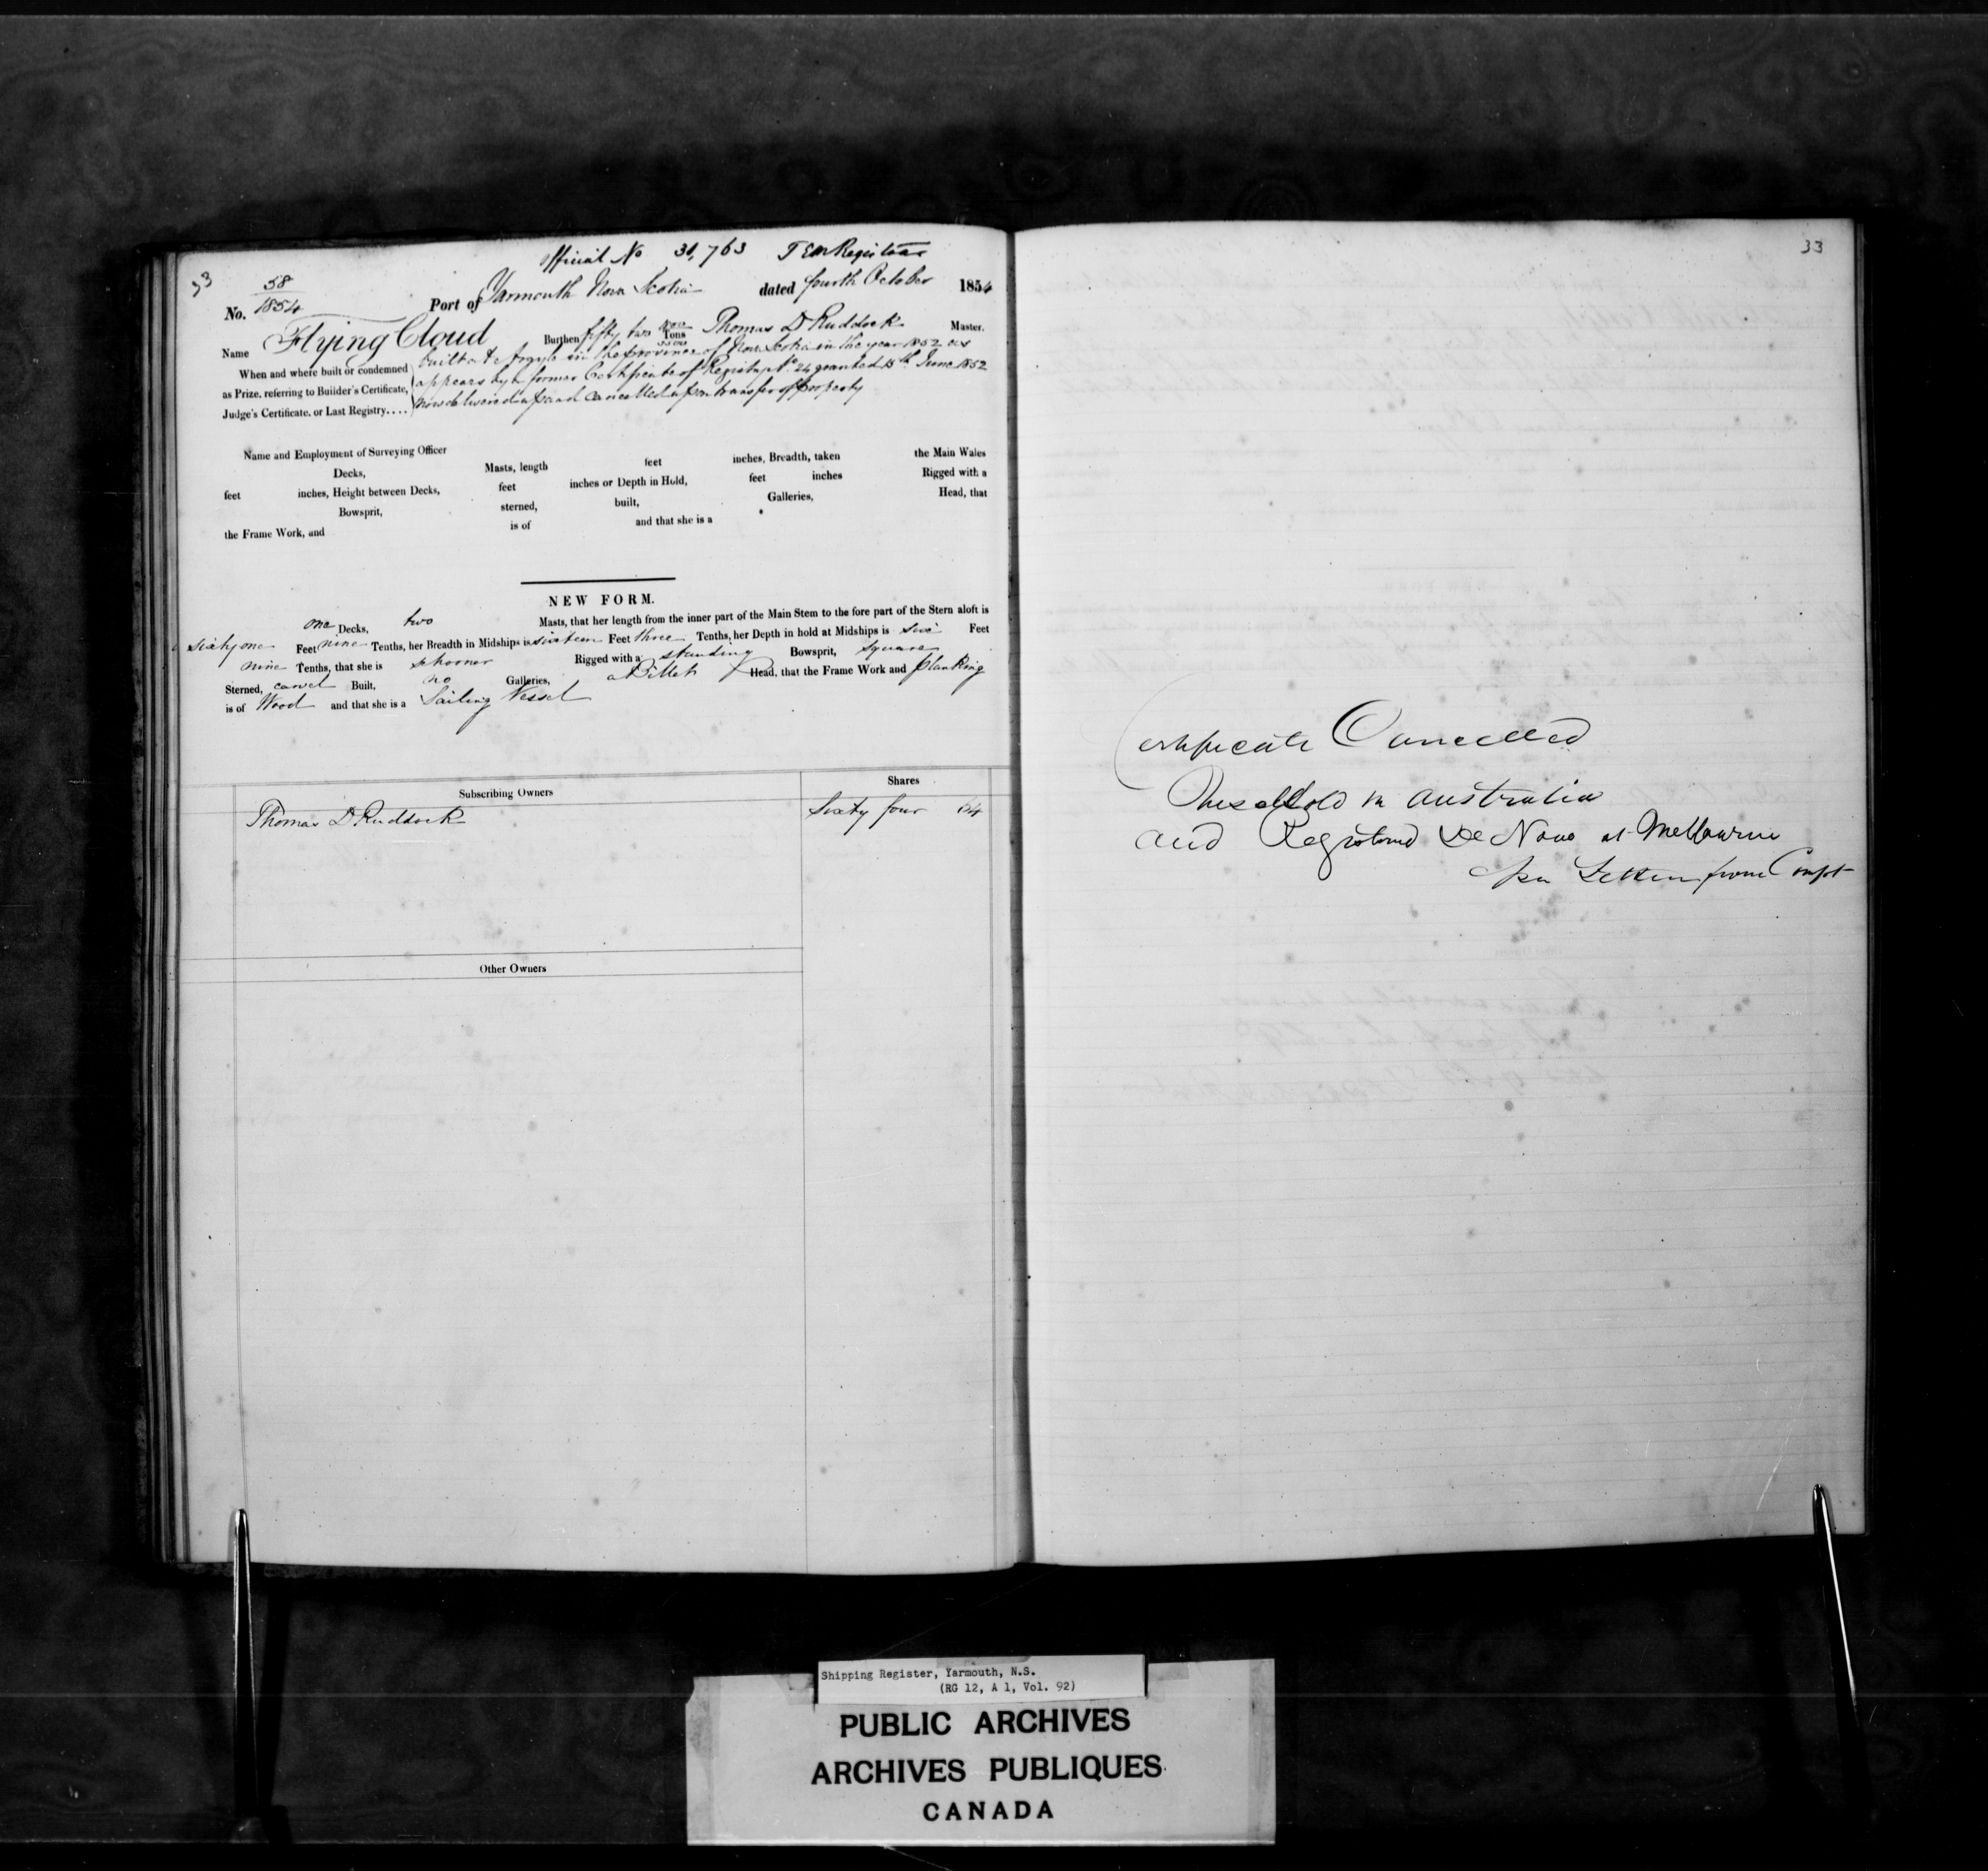 Official No 31,763 Registrar
33
No. 58/1854 Port of Yarmouth Nova Scotia dated fourth October 1854
Name Flying Cloud Burthen fifty two Tons Thomas D Ruddock Master.
When and where built or condemned built at Argyle in the province of Nova Scotia in the year 1852 as
as Prize, referring to Builder's Certificate, appears by a former Certificate of Registry No 24 granted 15th June 1852
Judge's Certificate, or Last Registry.... now delivered up and cancelled upon transfer of property
Name and Employment of Surveying Officer
Decks, Masts, length feet inches, Breadth, taken the Main Wales
feet inches, Height between Decks, feet inches or Depth in Hold, feet inches Rigged with a
Bowsprit, sterned, built, Galleries, Head, that
the Frame Work, and is of and that she is a
NEW FORM.
one Decks, two Masts, that her length from the inner part of the Main Stem to the fore part of the Stern aloft is
sixty one Feet nine Tenths, her Breadth in Midships is sixteen Feet three Tenths, her Depth in hold at Midships is six Feet
nine Tenths, that she is schooner Rigged with a standing Bowsprit, square
Sterned, carvel Built, no Galleries, a Billet Head, that the Frame Work and planking
is of Wood and that she is a Sailing Vessel
Subscribing Owners Shares
Thomas D Ruddock Sixty four 64
Other Owners
33
Certificate Cancelled
Vessel Sold in Australia
and Registered De Novo at Melbourne
per Letter from Compt
Shipping Register, Yarmouth, N.S.
(RG 12, A 1, Vol. 92)
PUBLIC ARCHIVES
ARCHIVES PUBLIQUES
CANADA